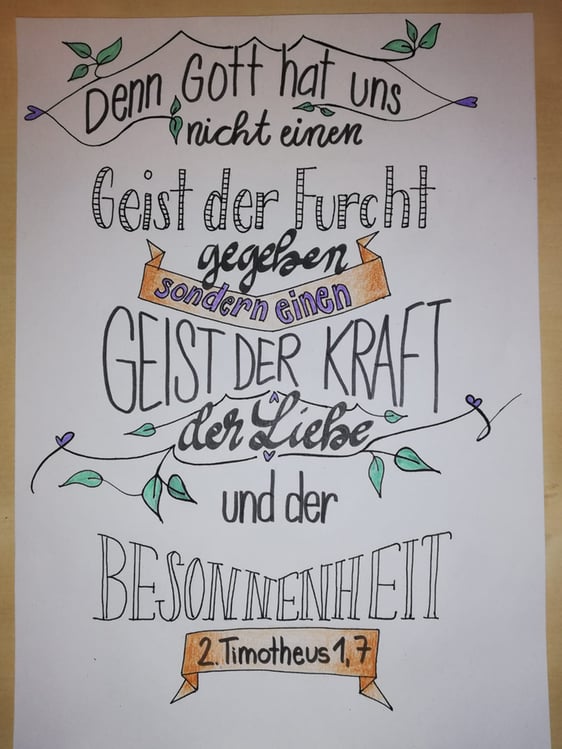 Denn Gott hat uns
nicht einen
Geist der Furcht
gegeben
sondern einen
GEIST DER KRAFT
der Liebe
und der
BESONNENHEIT
2. Timotheus 1,7